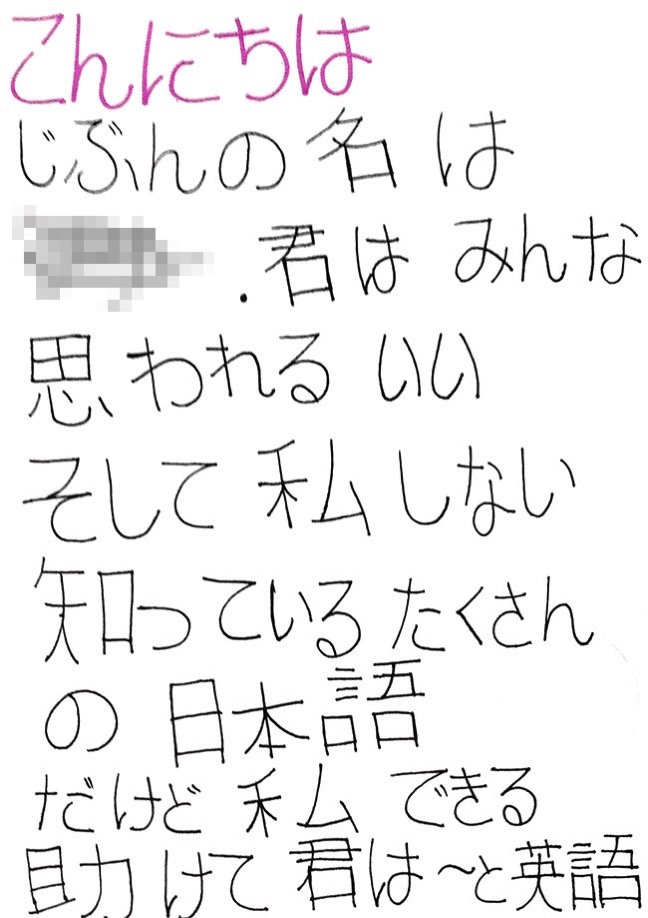 こんにちは
じぶんの 名 は
.君は みんな
思われる いい
そして 私 しない
知っている たくさん
の 日本語
だけど 私 できる
助けて 君は ～と英語